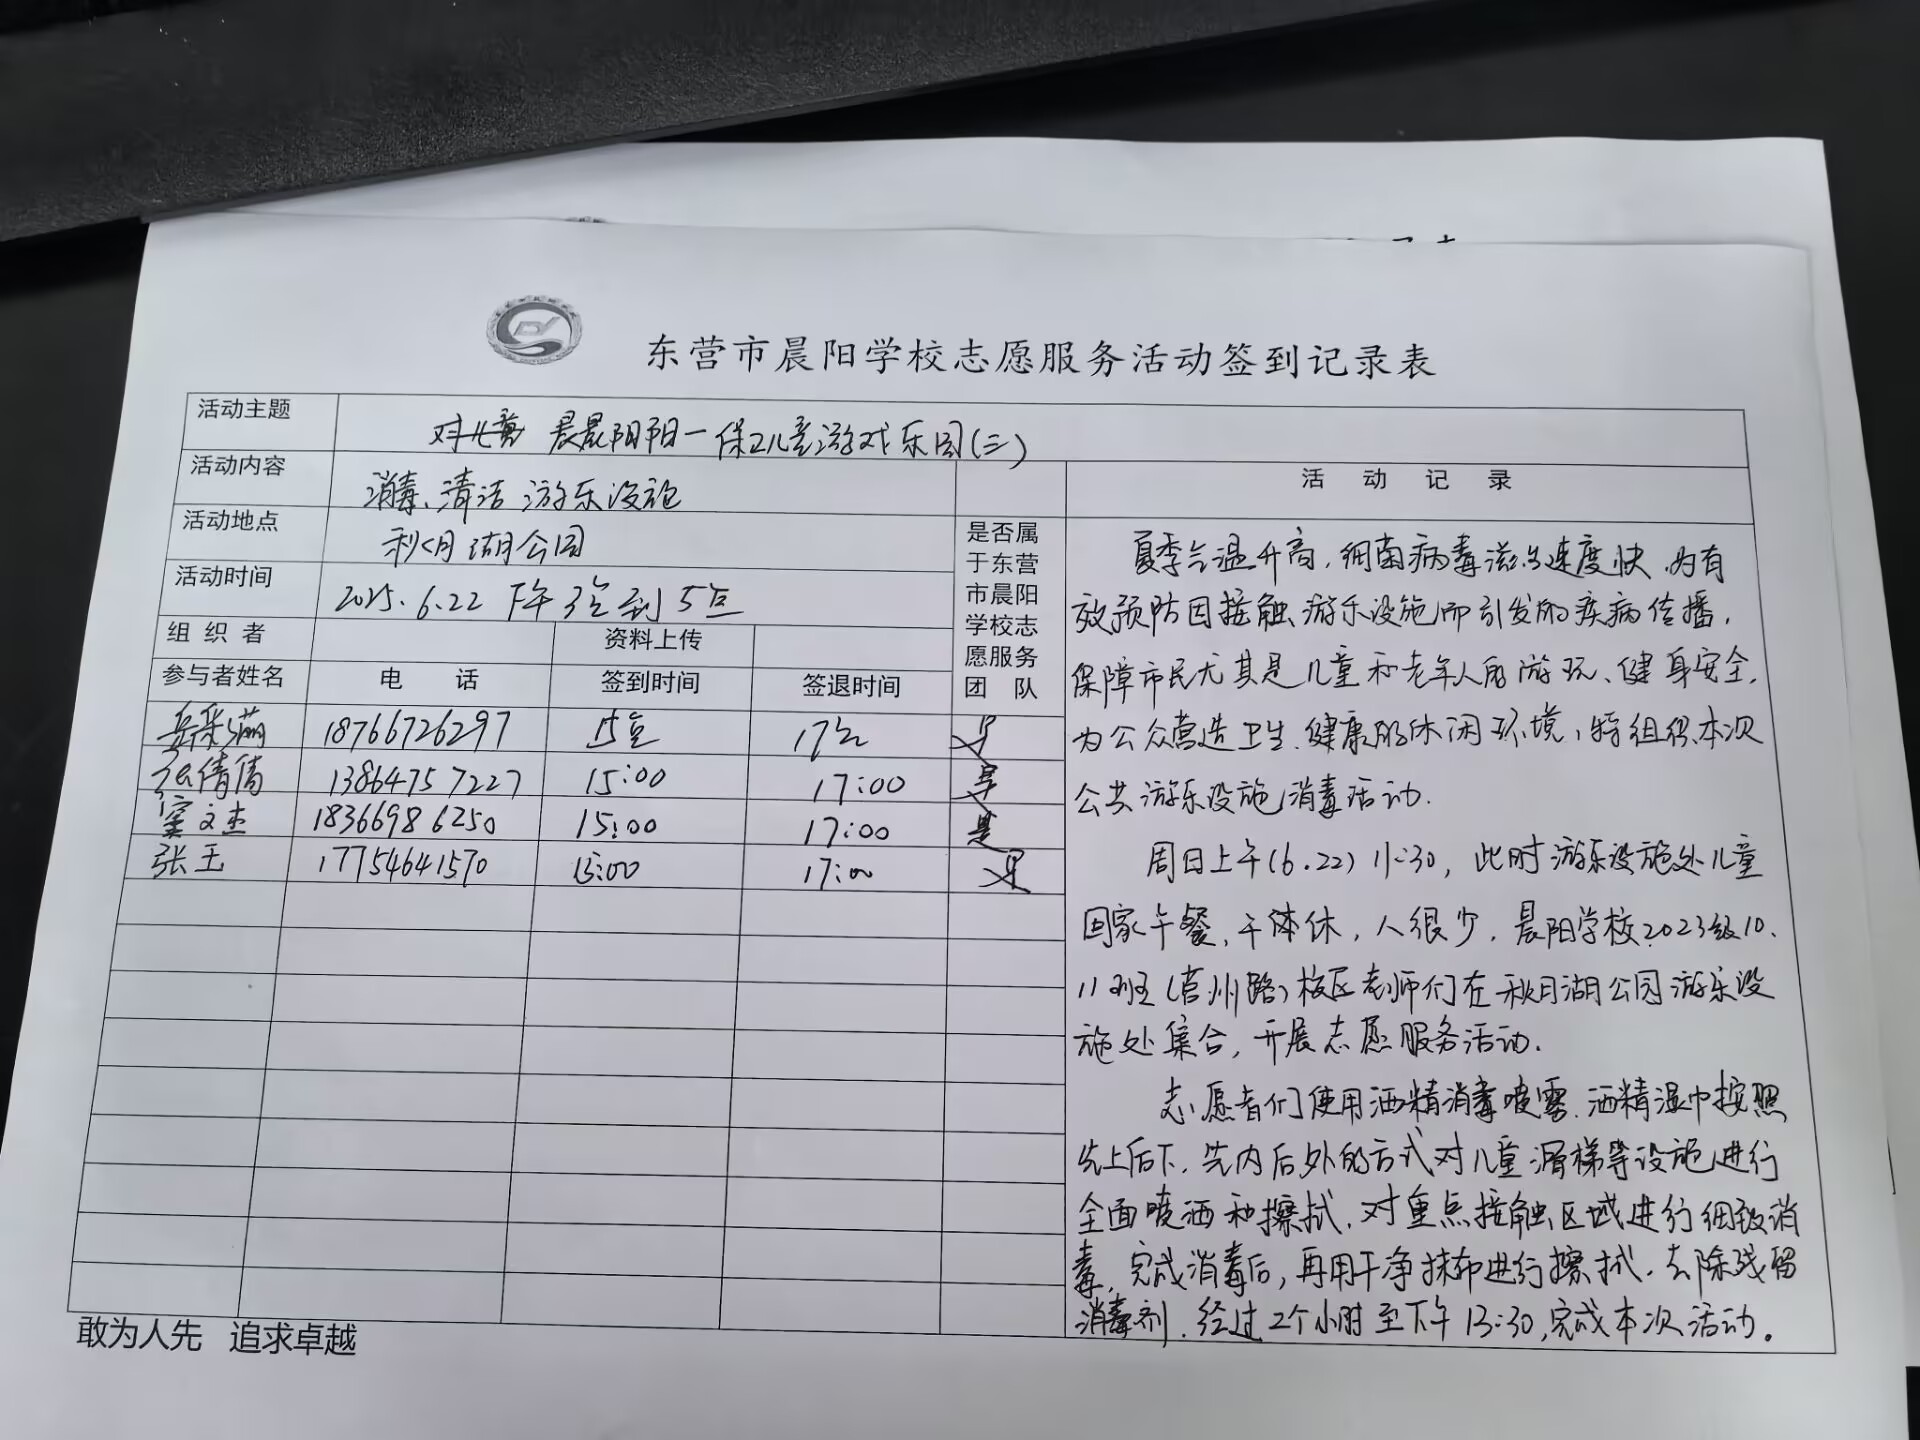 东营市晨阳学校志愿服务活动签到记录表
活动主题
晨晨阳阳一保卫儿童游戏乐园(三)
活动内容
消毒、清洁游乐设施
活动地点
秋月湖公园
活动时间
2025.6.22 下午3点到5点
组 织 者
资料上传
参与者姓名
电 话
签到时间
签退时间
是否属
于东营
市晨阳
学校志
愿服务
团 队
18766726297 15点 17点 是
张倩倩 13864757227 15:00 17:00 是
窦文杰 18366986250 15:00 17:00 是
张玉 17754641570 15:00 17:00 是
活 动 记 录
夏季气温升高,细菌病毒滋生速度快,为有
效预防因接触游乐设施而引发的疾病传播,
保障市民尤其是儿童和老年人的游玩、健身安全,
为公众营造卫生、健康的休闲环境,特组织本次
公共游乐设施消毒活动.
周日上午(6.22)11:30,此时游乐设施处儿童
回家午餐,午体休,人很少,晨阳学校2023级10、
11班(莒州路)校区老师们在秋月湖公园游乐设
施处集合,开展志愿服务活动.
志愿者们使用洒精消毒喷雾、洒精湿巾按照
先上后下,先内后外的方式对儿童滑梯等设施进行
全面喷洒和擦拭,对重点接触区域进行细致消
毒,完成消毒后,再用干净抹布进行擦拭,去除残留
消毒剂,经过2个小时至下午13:30,完成本次活动。
敢为人先 追求卓越